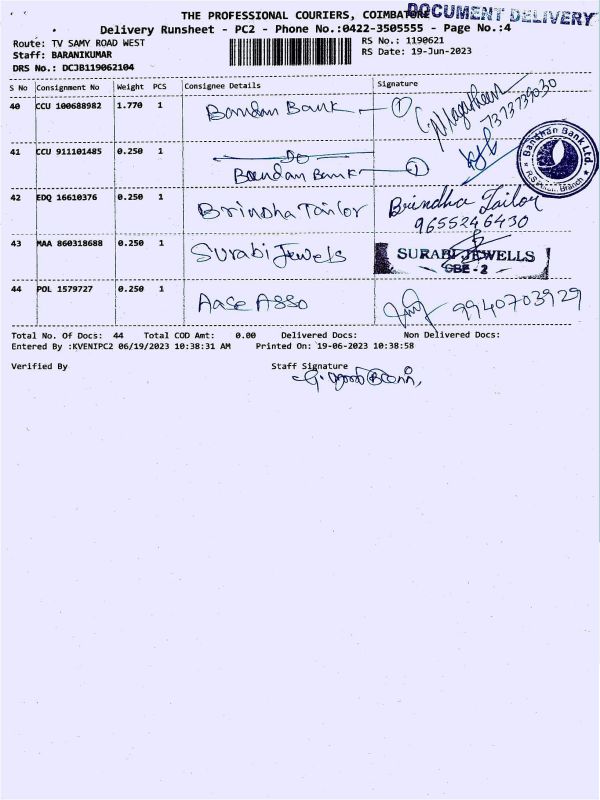 THE PROFESSIONAL COURIERS, COIMBATORE
DOCUMENT DELIVERY
Delivery Runsheet - PC2 - Phone No.:0422-3505555 - Page No.:4
Route: TV SAMY ROAD WEST
RS No.: 1190621
Staff: BARANIKUMAR
RS Date: 19-Jun-2023
DRS No.: DCJB119062104
S No Consignment No Weight PCS Consignee Details Signature
40 CCU 100688982 1.770 1 Bandan Bank ① 7373739030
41 CCU 911101485 0.250 1 Do
Bandan Bank ①
Bandhan Bank Ltd.
R.S.Puram Branch
42 EDQ 16610376 0.250 1 Brindha Tailor Brindha Tailor
9655246430
43 MAA 860318688 0.250 1 Surabi Jewels SURABI JEWELLS
CBE - 2
44 POL 1579727 0.250 1 Aase Asso 9940703929
Total No. Of Docs: 44 Total COD Amt: 0.00 Delivered Docs: Non Delivered Docs:
Entered By :KVENIPC2 06/19/2023 10:38:31 AM Printed On: 19-06-2023 10:38:58
Verified By Staff Signature